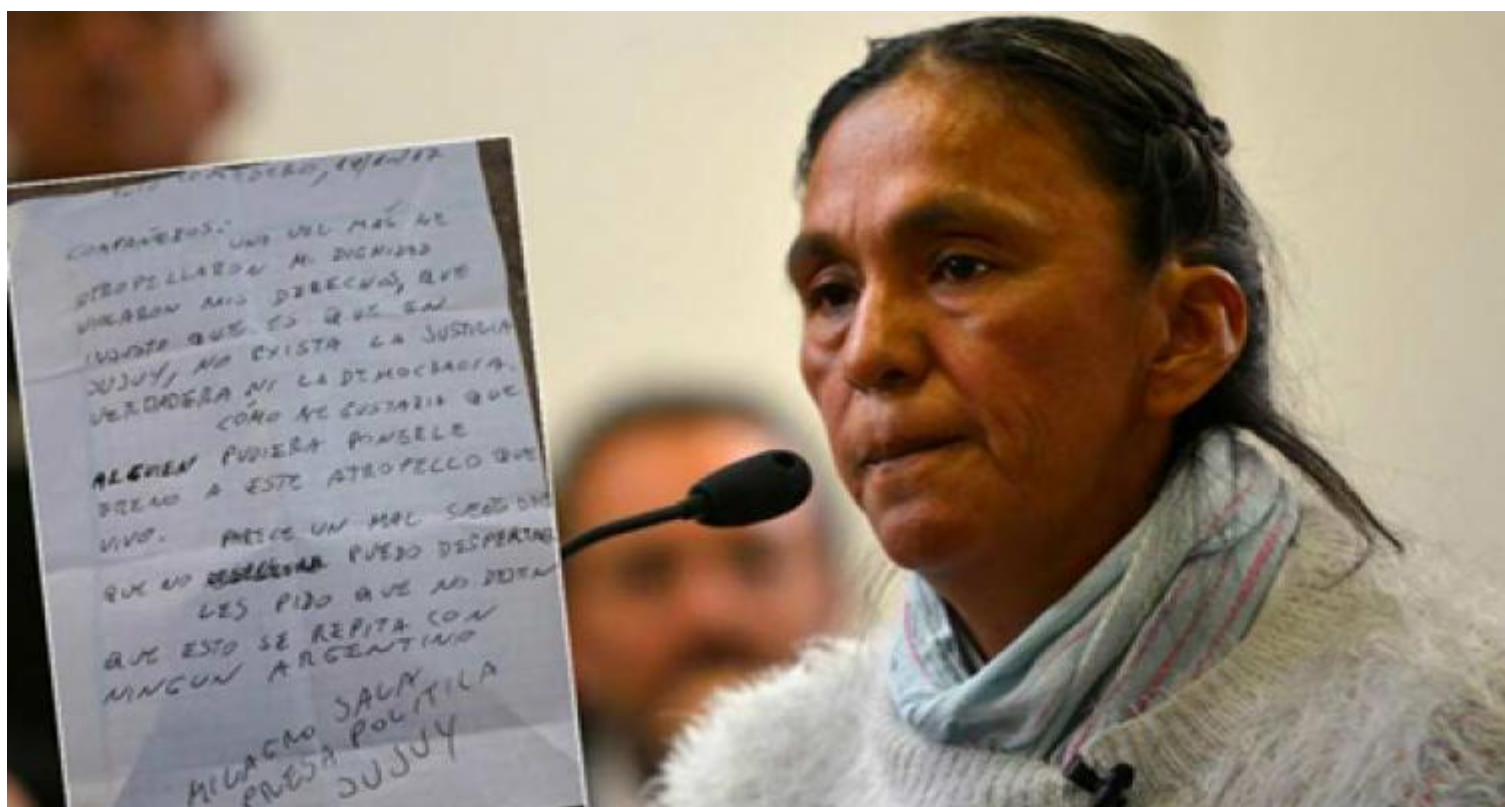 COMPAÑEROS:
UNA VEZ MAS ME
ATROPELLARON MI DIGNIDAD
VIOLARON MIS DERECHOS, QUE
QUE ES QUE EN
JUJUY, NO EXISTA LA JUSTICIA
VERDADERA NI LA DEMOCRACIA.
CÓMO ME GUSTARIA QUE
ALGUIEN PUDIERA PONERLE
FRENO A ESTE ATROPELLO QUE
VIVO. PARECE UN MAL SUEÑO DEL
QUE NO PUEDO DESPERTAR
LES PIDO QUE NO DEJEN
QUE ESTO SE REPITA CON
NINGUN ARGENTINO
MILAGRO SALA
PRESA POLITICA
JUJUY